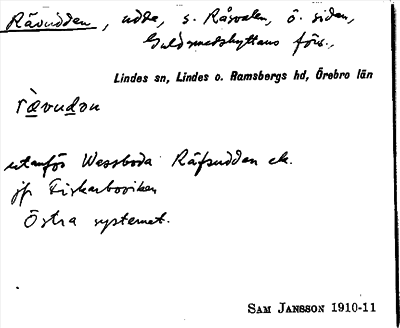 Rävudden, udde, s. Råsvalen, ö. sidan,
Guldsmedshyttans förs.,
Lindes sn, Lindes o. Ramsbergs hd, Örebro län
rævudən
utanför Wessboda Räfsudden ek.
jfr Fiskarboviken
Östra systemet.
SAM JANSSON 1910-11